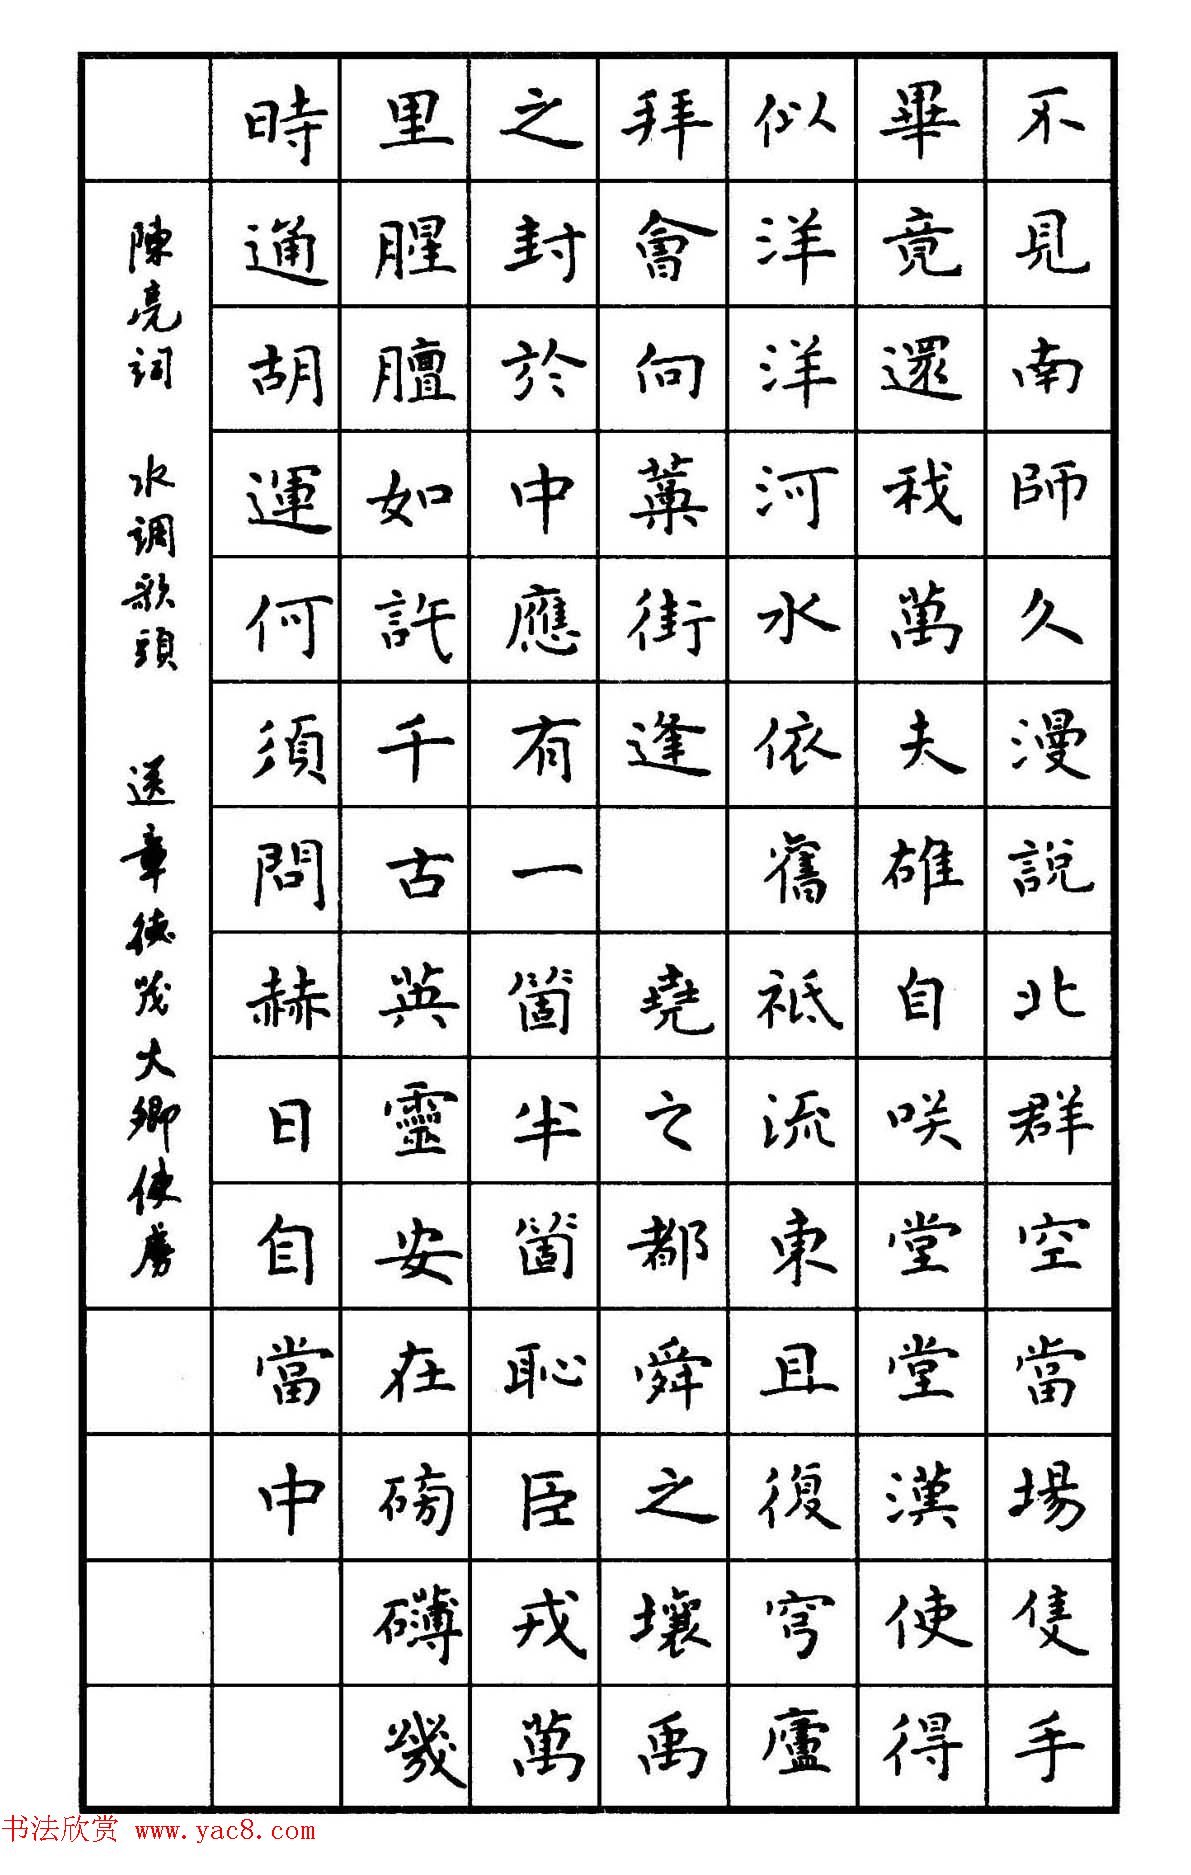 不見南師久漫說北群空當場隻手
畢竟還我萬夫雄自咲堂堂漢使得
似洋洋河水依舊祗流東且復穹廬
拜會向藁街逢 堯之都舜之壤禹
之封於中應有一箇半箇恥臣戎萬
里腥膻如許千古英靈安在磅礴幾
時通胡運何須問赫日自當中
陳亮詞 水调歌頭 送章德茂大卿使虜
书法欣赏 www.yac8.com